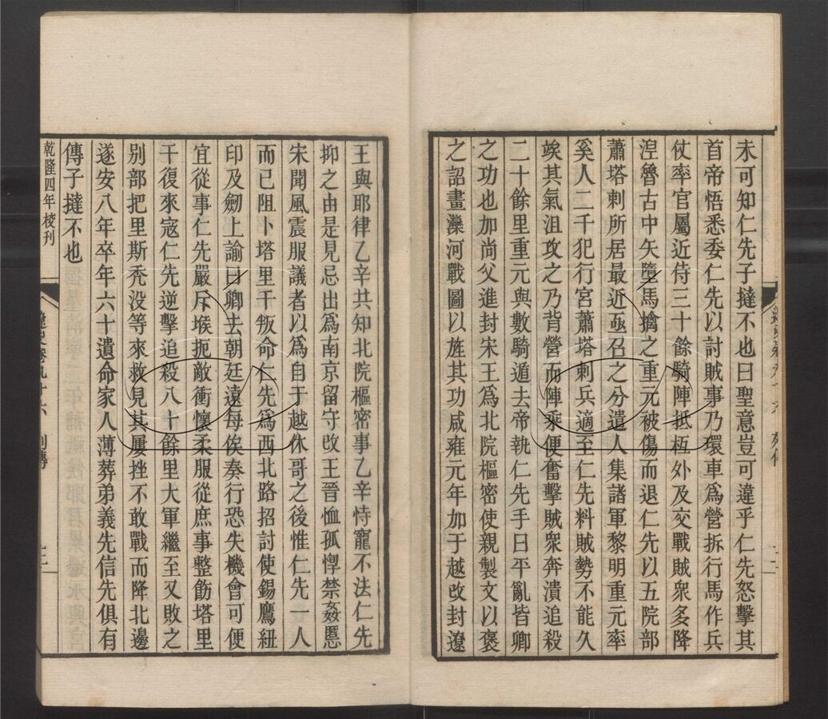 未可知仁先子撻不也曰聖意豈可違乎仁先怒擊其
首帝悟悉委仁先以討賊事乃環車為營拆行馬作兵
仗率官屬近侍三十餘騎陣抵枑外及交戰賊衆多降
涅魯古中矢墮馬擒之重元被傷而退仁先以五院部
蕭塔剌所居最近亟召之分遣人集諸軍黎明重元率
奚人二千犯行宮蕭塔剌兵適至仁先料賊勢不能久
俟其氣沮攻之乃背營而陣乘便奮擊賊衆奔潰追殺
二十餘里重元與數騎遁去帝執仁先手曰平亂皆卿
之功也加尚父進封宋王為北院樞密使親製文以褒
之詔畫灤河戰圖以旌其功咸雍元年加于越改封遼
王與耶律乙辛共知北院樞密事乙辛恃寵不法仁先
抑之由是見忌出為南京留守改王晉恤孤惸禁姦慝
宋聞風震服議者以為自于越休哥之後惟仁先一人
而已阻卜塔里干叛命仁先為西北路招討使錫鷹紐
印及劒上諭曰卿去朝廷遠每俟奏行恐失機會可便
宜從事仁先嚴斥堠扼敵衝懷柔服從庶事整飭塔里
干復來寇仁先逆擊追殺八十餘里大軍繼至又敗之
别部把里斯禿沒等來救見其屢挫不敢戰而降北邊
遂安八年卒年六十遺命家人薄葬弟義先信先俱有
傳子撻不也
乾隆四年校刊